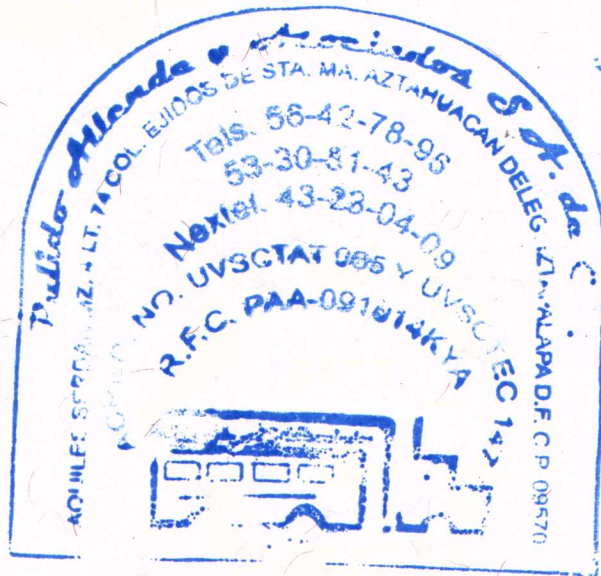 Pulido Allende y Asociados S.A. de C.
AQUILES SERDAN MZ. 4 LT. 74 COL. EJIDOS DE STA. MA. AZTAHUACAN DELEG. IZTAPALAPA D.F. C.P. 09570
Tels. 56-42-78-95
53-30-81-43
Nextel. 43-23-04-09
NO. UVSCTAT 085 Y UVSCTEC 142
R.F.C. PAA-091014KYA